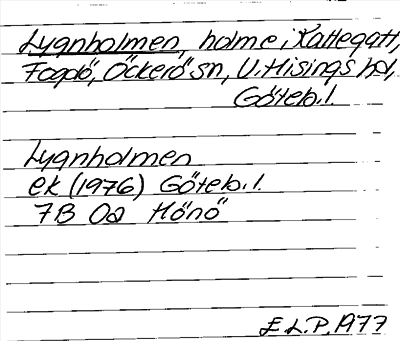 Lygnholmen, holme i Kattegatt,
Fogdö, Öckerö sn, V. Hisings hd,
Göteb. l.
Lygnholmen
ek (1976) Göteb. l.
7B 0a Hönö
E L.P. 1977